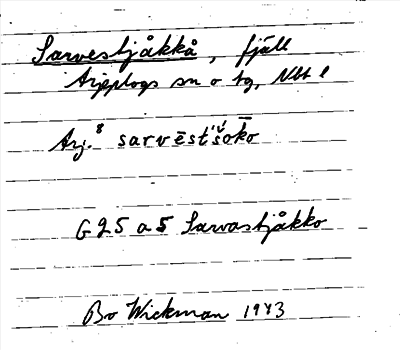 Sarvestjåkkå, fjäll
Arjeplogs sn o tg, Nbt l
Arj.⁸ sarvēst´š́ok̄o
G25 a5 Sarvastjåkko
Bo Wickman 1943